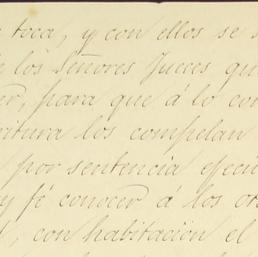 toca, y con ellos se s
los Señores Jueces qu
er, para que á lo con
ritura los compelan
por sentencia ejecu
y fé conocer á los oto
, con habitacion el